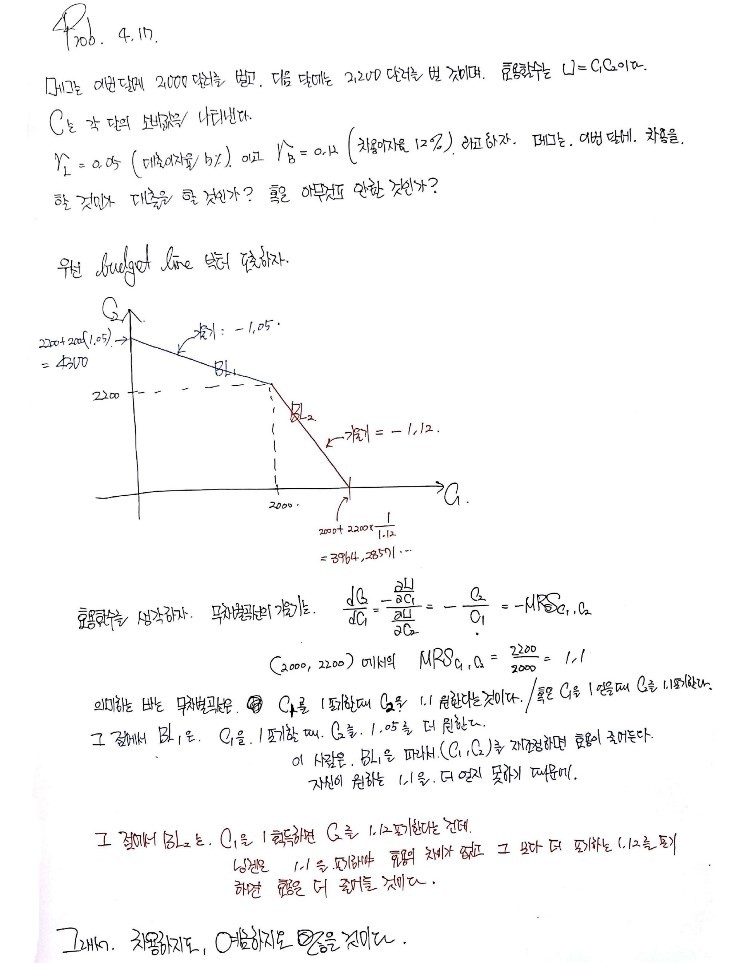 Prob. 4.17.
메그는 이번달에 2,000 달러를 벌고, 다음 달에는 2,200 달러를 벌 것이며. 효용함수는 U = C₁C₂이다.
C는 각 달의 소비값을 나타낸다.
r_L = 0.05 (대출이자율 5%) 이고 r_B = 0.12 (차용이자율 12%) 라고하자. 메그는. 이번 달에. 차용을.
할 것인가 대출을 할 것인가? 혹은 아무것도 안할 것인가?
우선 budget line 부터 도출하자.
C₂
2200+200(1.05)
= 4300
기울기 : -1.05.
BL₁
2200
BL₂
기울기 = -1.12.
C₁.
2000.
2000 + 2200 × 1/1.12
= 3964.28571...
효용함수를 생각하자. 무차별곡선의 기울기는. dC₂/dC₁ = -(∂U/∂C₁)/(∂U/∂C₂) = - C₂/C₁ = -MRS C₁,C₂
(2000, 2200) 에서의 MRS C₁,C₂ = 2200/2000 = 1.1
의미하는 바는 무차별곡선은. C₁를 1 포기할때 C₂을 1.1 원한다는것이다./혹은 C₁을 1 얻을때 C₂를 1.1포기한다.
그 점에서 BL₁은. C₁을. 1 포기할 때. C₂를. 1.05를 더 원한다.
이 사람은. BL₁을 따라서. (C₁, C₂)를 재조정하면 효용이 줄어든다.
자신이 원하는 1.1을. 더 얻지 못하기 때문에.
그 점에서 BL₂는. C₁을 1 획득하면 C₂를 1.12 포기한다는 건데.
1.1 을 포기해야 효용의 차이가 없고 그 보다 더 포기하는 1.12를 포기
하면 효용은 더 줄어들 것이다.
그래서. 차용하지도, 예금하지도 않을 것이다.